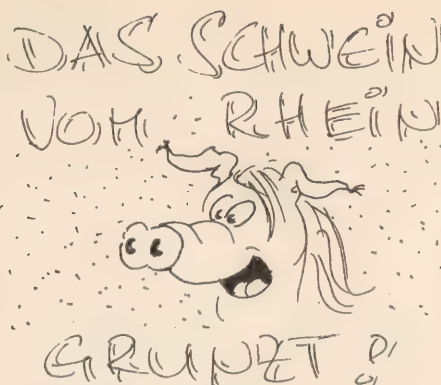 DAS SCHWEIN
VOM RHEIN
GRUNZT!